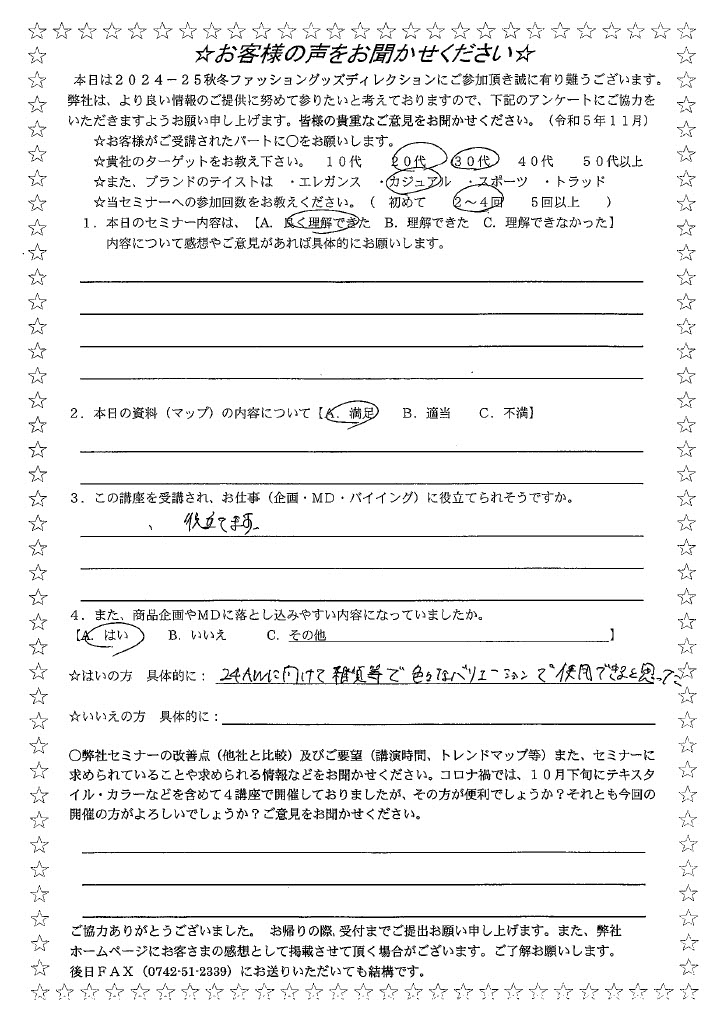 ☆お客様の声をお聞かせください☆
本日は２０２４－２５秋冬ファッショングッズディレクションにご参加頂き誠に有り難うございます。
弊社は、より良い情報のご提供に努めて参りたいと考えておりますので、下記のアンケートにご協力を
いただきますようお願い申し上げます。皆様の貴重なご意見をお聞かせください。（令和５年１１月）
☆お客様がご受講されたパートに〇をお願いします。
☆貴社のターゲットをお教え下さい。 １０代 ２０代 ３０代 ４０代 ５０代以上
☆また、ブランドのテイストは ・エレガンス ・カジュアル ・スポーツ ・トラッド
☆当セミナーへの参加回数をお教えください。（ 初めて ２～４回 ５回以上 ）
１．本日のセミナー内容は、【A．良く理解できた B．理解できた C．理解できなかった】
内容について感想やご意見があれば具体的にお願いします。
２．本日の資料（マップ）の内容について【A．満足 B．適当 C．不満】
３．この講座を受講され、お仕事（企画・MD・バイイング）に役立てられそうですか。
役立てます。
４．また、商品企画やMDに落とし込みやすい内容になっていましたか。
【A．はい B．いいえ C．その他 】
☆はいの方 具体的に： 24AWに向けて雑貨等で色々なバリエーションで使用できると思った
☆いいえの方 具体的に：
〇弊社セミナーの改善点（他社と比較）及びご要望（講演時間、トレンドマップ等）また、セミナーに
求められていることや求められる情報などをお聞かせください。コロナ禍では、１０月下旬にテキスタ
イル・カラーなどを含めて４講座で開催しておりましたが、その方が便利でしょうか？それとも今回の
開催の方がよろしいでしょうか？ご意見をお聞かせください。
ご協力ありがとうございました。 お帰りの際、受付までご提出お願い申し上げます。また、弊社
ホームページにお客さまの感想として掲載させて頂く場合がございます。ご了解お願いします。
後日ＦＡＸ（0742-51-2339）にお送りいただいても結構です。